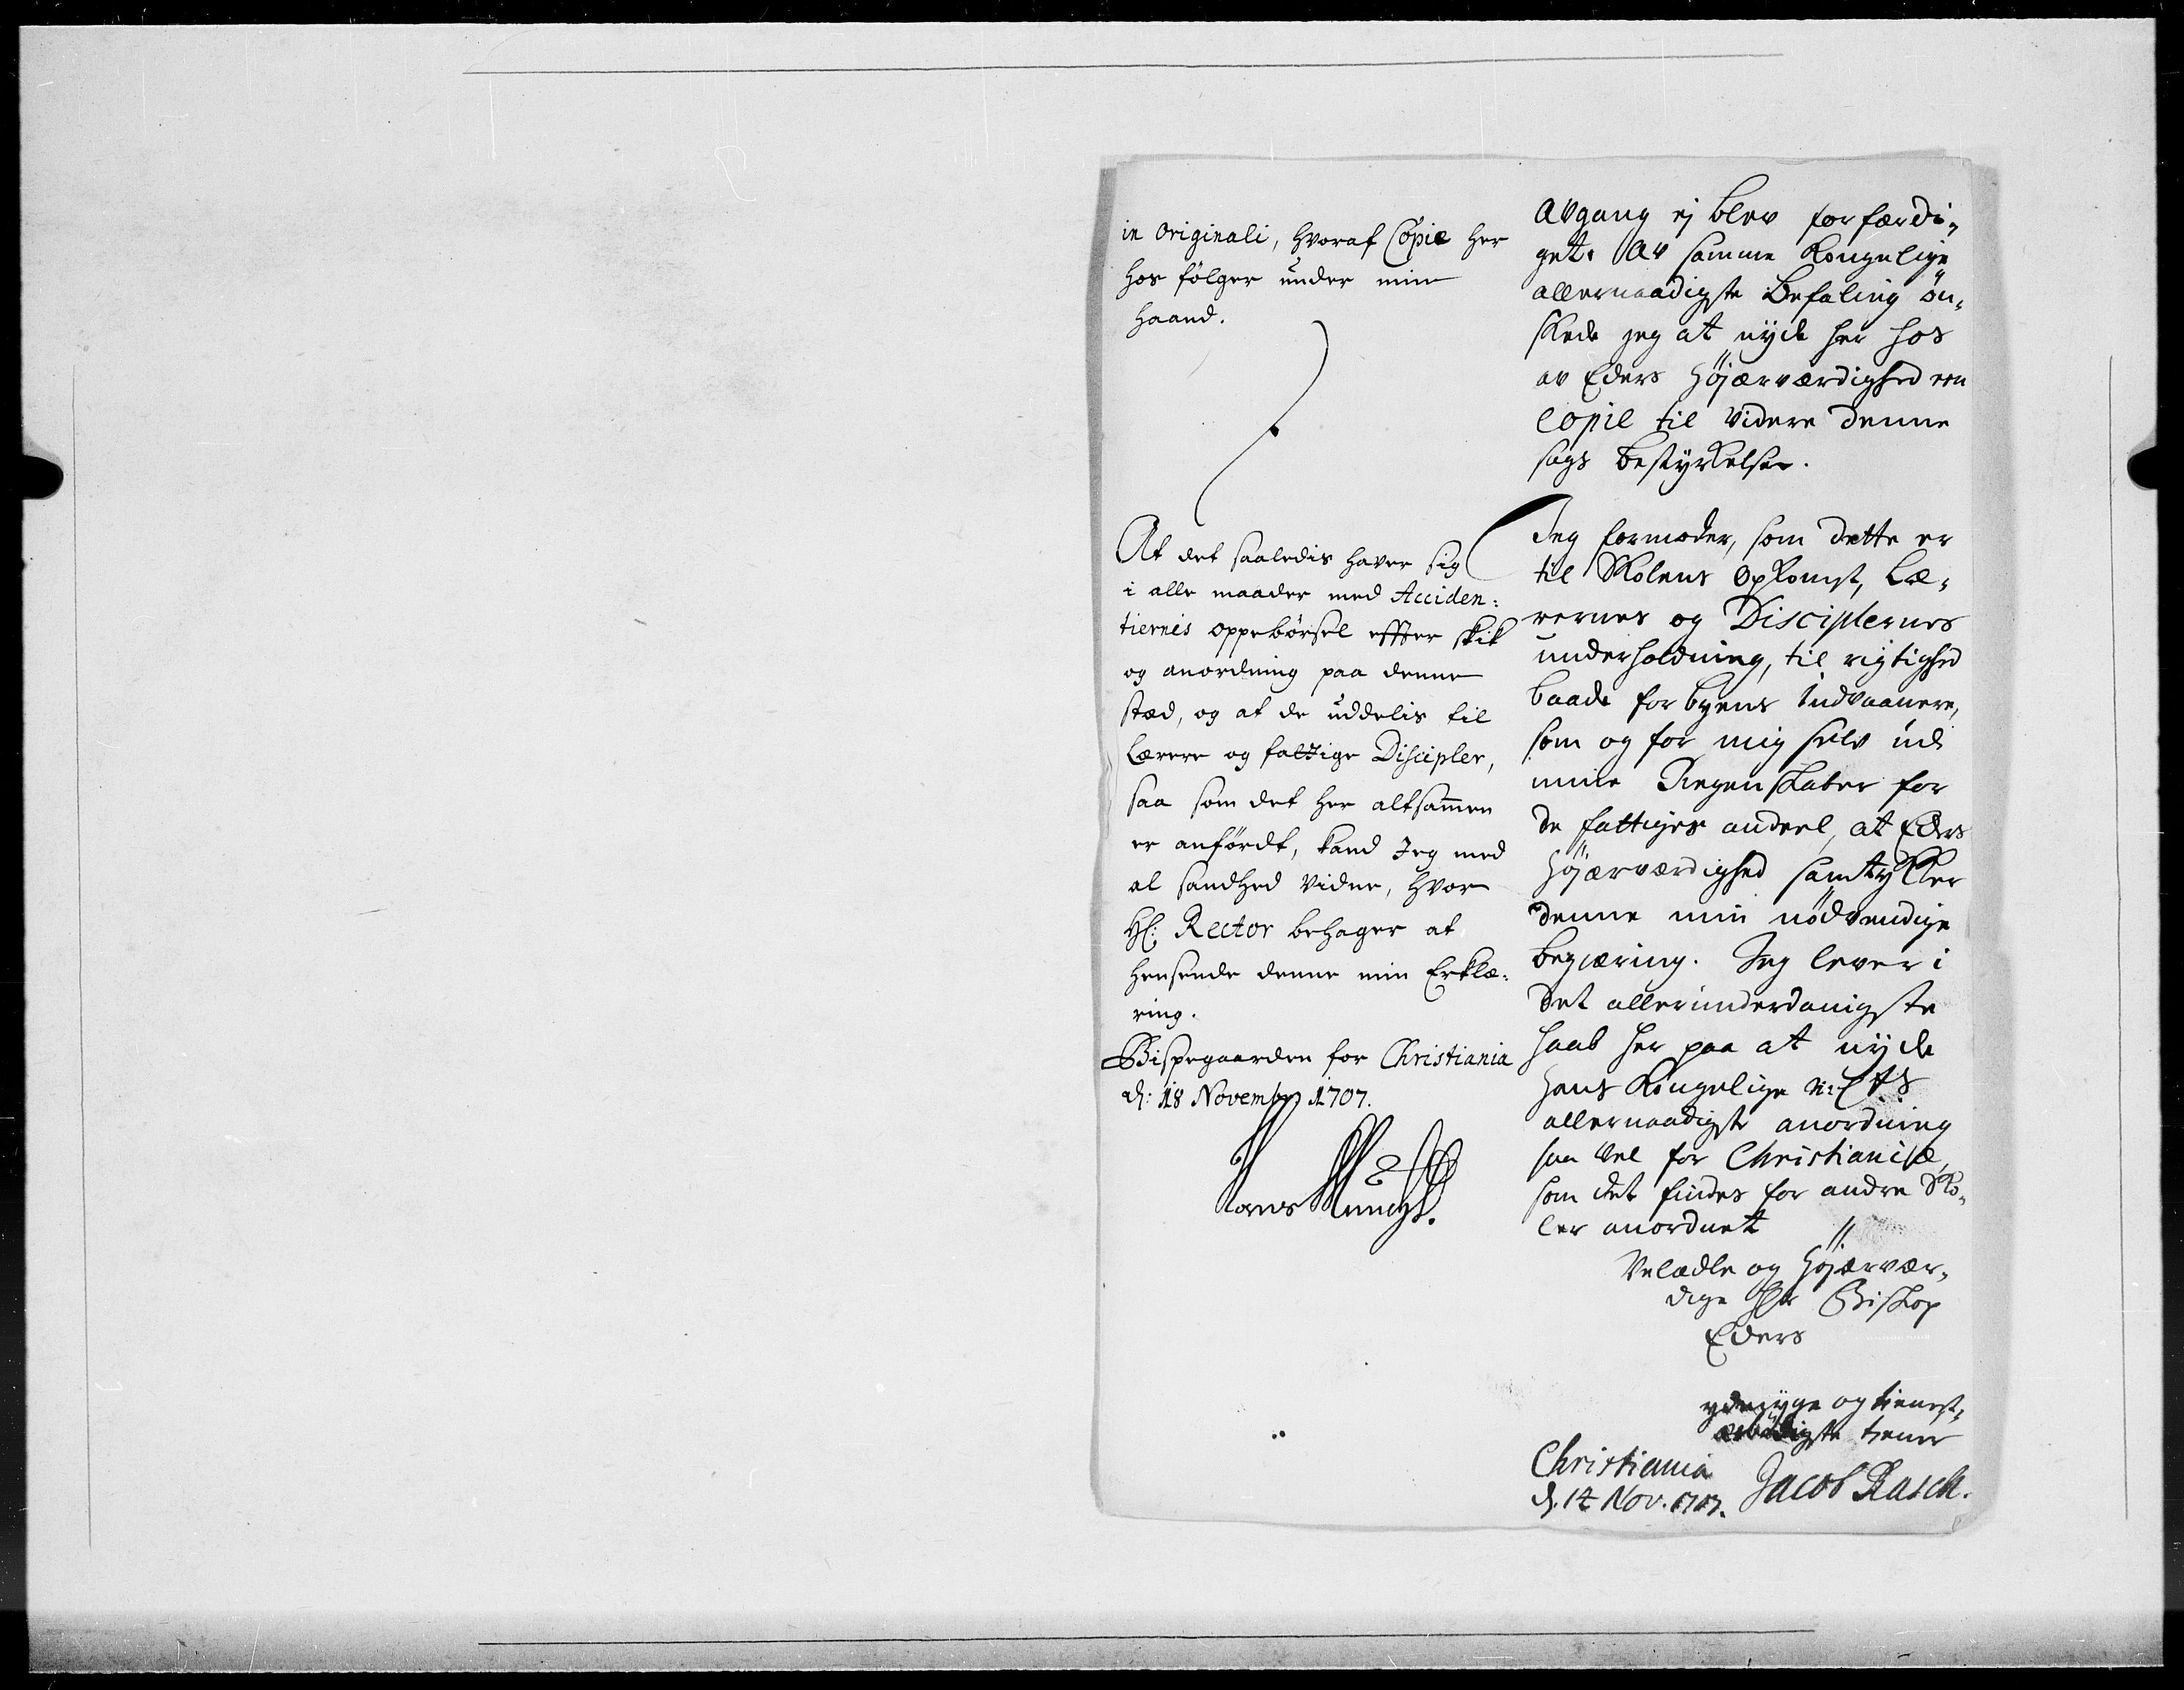 in Originali, hvoraf Copie her
hos følger under min
haand.
At det saaledis haver sig
i alle maader med Acciden:
tiernis oppebørsel effter skik
og anordning paa denne
stæd, og at de uddelis til
Lærere og fattige Discipler,
saa som det her altsammen
er anfördt, kand Jeg med
al sandhed vidne, hvor
Hr: Rector behager at
hensende denne min Erklæ:
ring.
Bispegaarden for Christiania
d: 18 Novembr 1707.
Hans Munch.
Avgang ej blev forfærdi,
get. Av samme Kongelige
allernaadigste Befaling ön,
skede jeg at nyde her hos
av Eders Höjærværdighed een
copie til videre denne
sags bestyrkelse.
Jeg formoder, som dette er
til Skolens opkomst, Læ,
rernes og Disciplernes
underholdning, til rigtighed
baade for byens Indvaanere,
som og for mig selv udi
mine Regenskaber for
de fattiges andeel, at Eders
Höjærværdighed samtykker
denne min nödvendige
begiæring. Jeg lever i
det allerunderdanigste
haab her paa at nyde
Hans Kongelige M: Ets
allernaadigste anordning
saa vel for Christaniæ,
som det findes for andre Sko,
ler anordnet
Velædle og Höjærvær,
dige Hr Biskop
Eders
ydmyge og tienst,
ærbødigste tiener
Christiania
d. 14 Nov. 1707. Jacob Rasch.